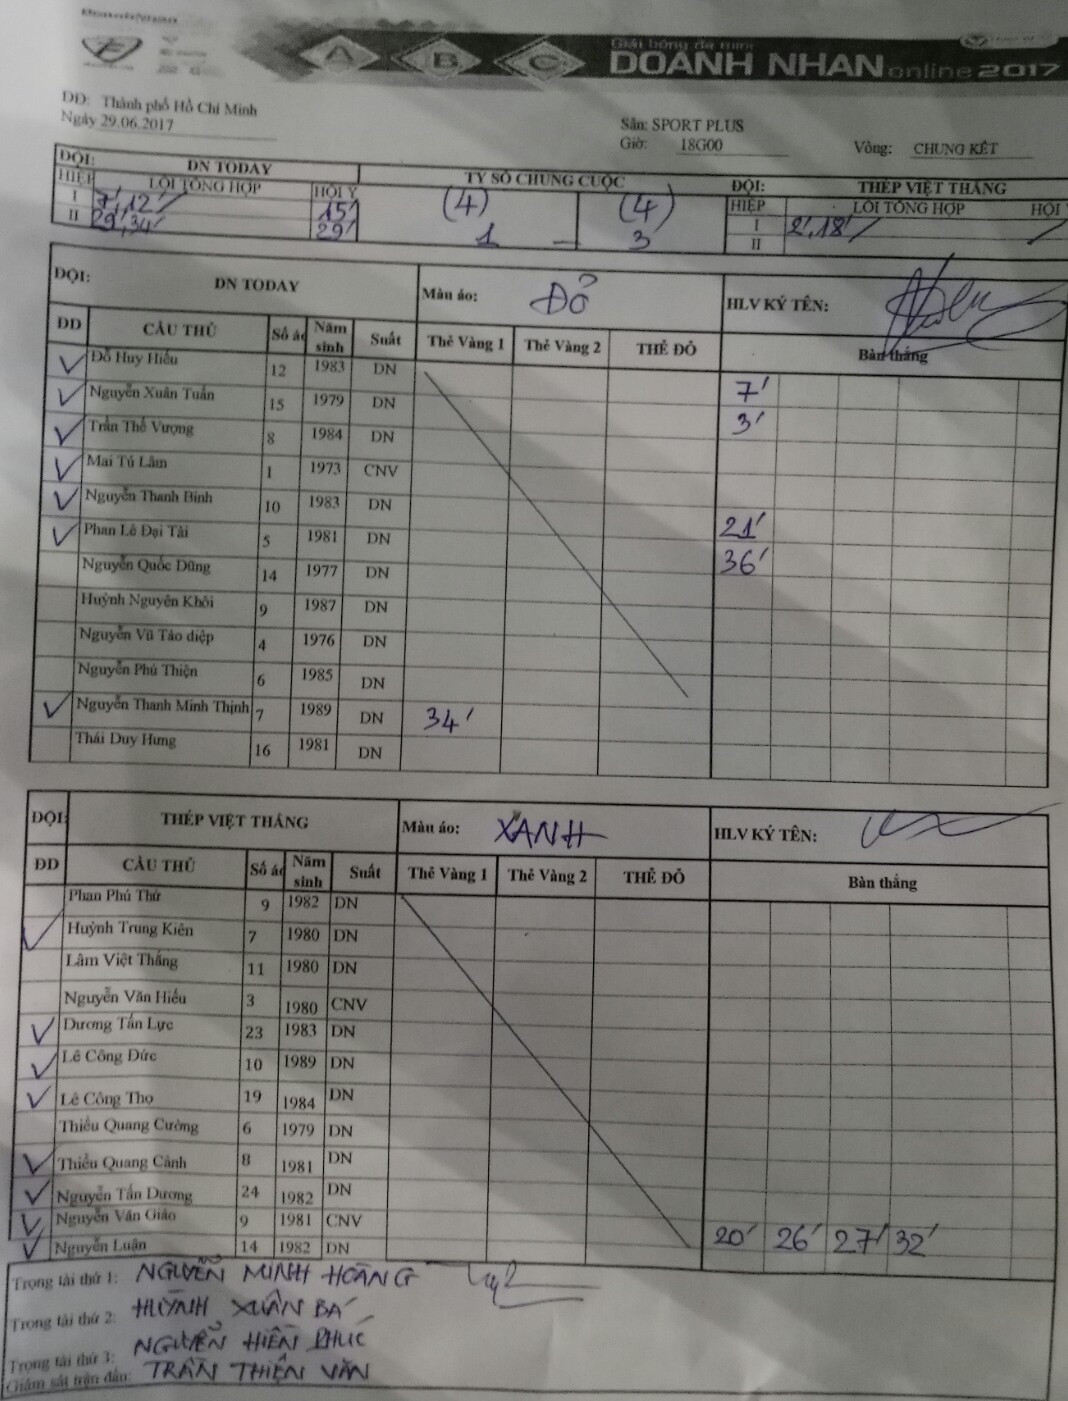 A B C
Giải bóng đá mini
DOANH NHAN online 2017
DD: Thành phố Hồ Chí Minh
Ngày 29.06.2017
Sân: SPORT PLUS
Giờ: 18G00
Vòng: CHUNG KẾT
ĐỘI: DN TODAY TỶ SỐ CHUNG CUỘC ĐỘI: THÉP VIỆT THẮNG
HIỆP LỖI TỔNG HỢP HỘI Ý (4) (4) HIỆP LỖI TỔNG HỢP HỘI
I 7', 12' 15' I 2', 18'
II 29', 34' 29' 1 - 3 II
ĐỘI: DN TODAY Màu áo: ĐỎ HLV KÝ TÊN:
DD CẦU THỦ Số áo Năm sinh Suất Thẻ Vàng 1 Thẻ Vàng 2 THẺ ĐỎ Bàn thắng
Đỗ Huy Hiếu 12 1983 DN 7'
Nguyễn Xuân Tuấn 15 1979 DN 3'
Trần Thế Vượng 8 1984 DN
Mai Tú Lâm 1 1973 CNV
Nguyễn Thanh Bình 10 1983 DN 21'
Phan Lê Đại Tài 5 1981 DN 36'
Nguyễn Quốc Dũng 14 1977 DN
Huỳnh Nguyên Khôi 9 1987 DN
Nguyễn Vũ Tảo diệp 4 1976 DN
Nguyễn Phú Thiện 6 1985 DN
Nguyễn Thanh Minh Thịnh 7 1989 DN 34'
Thái Duy Hưng 16 1981 DN
ĐỘI: THÉP VIỆT THẮNG Màu áo: XANH HLV KÝ TÊN:
ĐD CẦU THỦ Số áo Năm sinh Suất Thẻ Vàng 1 Thẻ Vàng 2 THẺ ĐỎ Bàn thắng
Phan Phú Thứ 9 1982 DN
Huỳnh Trung Kiên 7 1980 DN
Lâm Việt Thắng 11 1980 DN
Nguyễn Văn Hiếu 3 1980 CNV
Dương Tấn Lực 23 1983 DN
Lê Công Đức 10 1989 DN
Lê Công Thọ 19 1984 DN
Thiều Quang Cường 6 1979 DN
Thiều Quang Cảnh 8 1981 DN
Nguyễn Tấn Dương 24 1982 DN
Nguyễn Văn Giáo 9 1981 CNV 20' 26' 27' 32'
Nguyễn Luận 14 1982 DN
Trọng tài thứ 1: NGUYỄN MINH HOÀNG
Trọng tài thứ 2: HUỲNH XUÂN BÁ
Trọng tài thứ 3: NGUYỄN HIỀN PHÚC
Giám sát trận đấu: TRẦN THIỆN VĂN